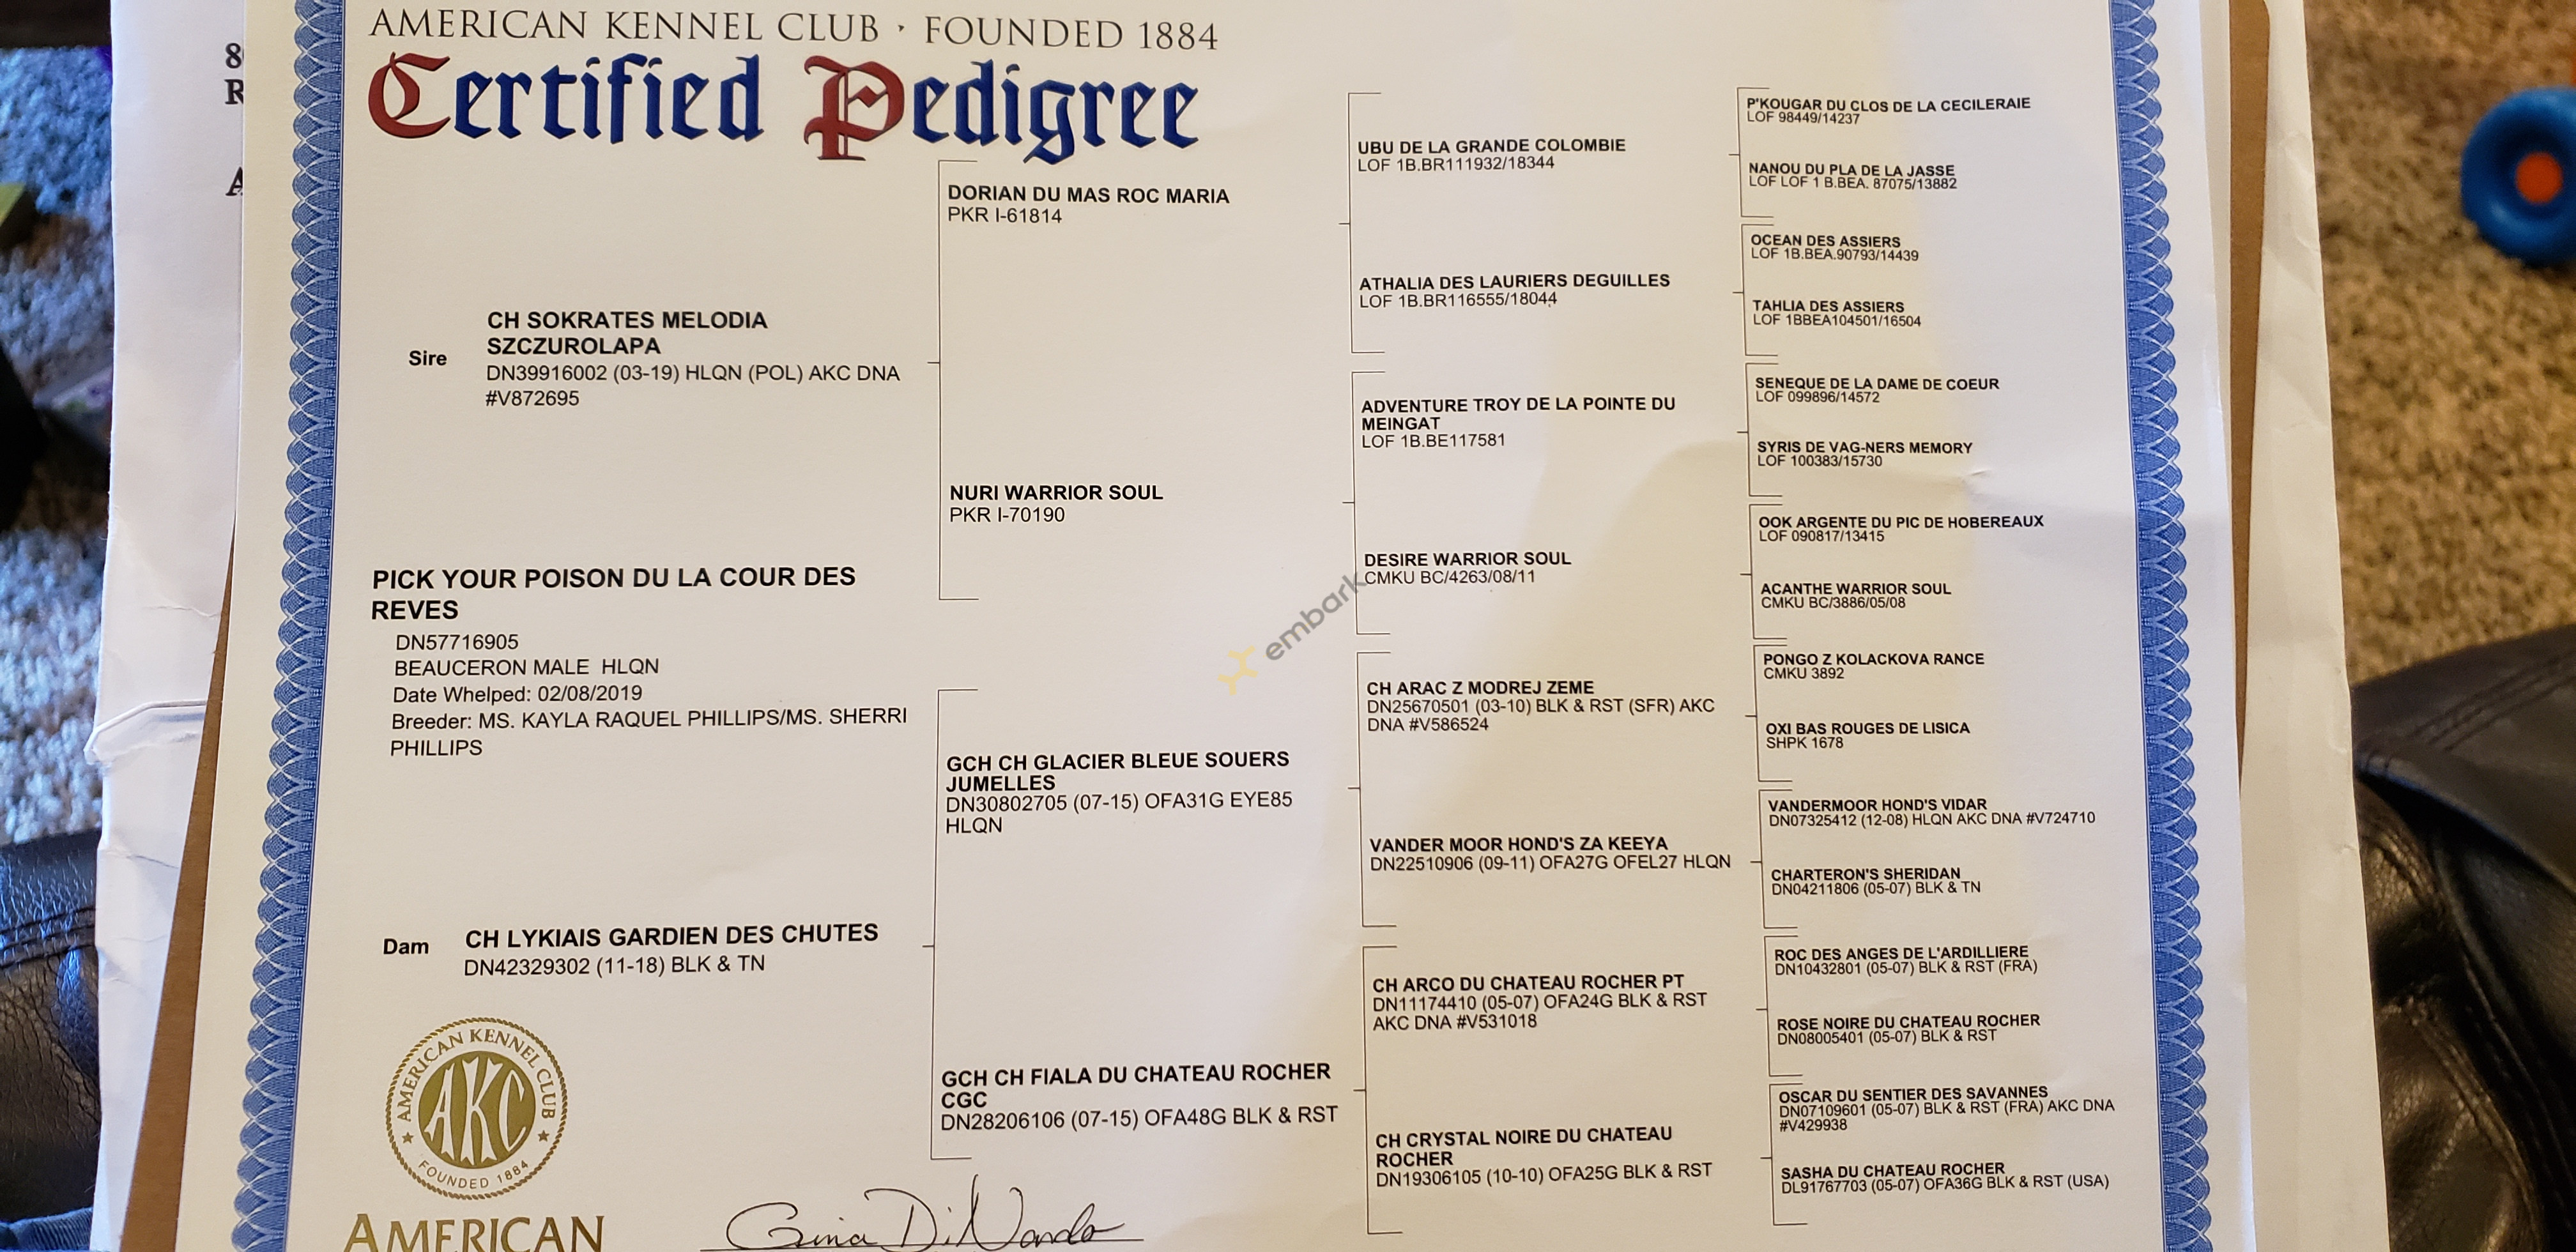 AMERICAN KENNEL CLUB · FOUNDED 1884
Certified Pedigree
8
R
A
Sire
CH SOKRATES MELODIA
SZCZUROLAPA
DN39916002 (03-19) HLQN (POL) AKC DNA
#V872695
PICK YOUR POISON DU LA COUR DES
REVES
DN57716905
BEAUCERON MALE HLQN
Date Whelped: 02/08/2019
Breeder: MS. KAYLA RAQUEL PHILLIPS/MS. SHERRI
PHILLIPS
Dam
CH LYKIAIS GARDIEN DES CHUTES
DN42329302 (11-18) BLK & TN
DORIAN DU MAS ROC MARIA
PKR I-61814
NURI WARRIOR SOUL
PKR I-70190
GCH CH GLACIER BLEUE SOUERS
JUMELLES
DN30802705 (07-15) OFA31G EYE85
HLQN
GCH CH FIALA DU CHATEAU ROCHER
CGC
DN28206106 (07-15) OFA48G BLK & RST
UBU DE LA GRANDE COLOMBIE
LOF 1B.BR111932/18344
ATHALIA DES LAURIERS DEGUILLES
LOF 1B.BR116555/18044
ADVENTURE TROY DE LA POINTE DU
MEINGAT
LOF 1B.BE117581
DESIRE WARRIOR SOUL
CMKU BC/4263/08/11
CH ARAC Z MODREJ ZEME
DN25670501 (03-10) BLK & RST (SFR) AKC
DNA #V586524
VANDER MOOR HOND'S ZA KEEYA
DN22510906 (09-11) OFA27G OFEL27 HLQN
CH ARCO DU CHATEAU ROCHER PT
DN11174410 (05-07) OFA24G BLK & RST
AKC DNA #V531018
CH CRYSTAL NOIRE DU CHATEAU
ROCHER
DN19306105 (10-10) OFA25G BLK & RST
P'KOUGAR DU CLOS DE LA CECILERAIE
LOF 98449/14237
NANOU DU PLA DE LA JASSE
LOF LOF 1 B.BEA. 87075/13882
OCEAN DES ASSIERS
LOF 1B.BEA.90793/14439
TAHLIA DES ASSIERS
LOF 1BBEA104501/16504
SENEQUE DE LA DAME DE COEUR
LOF 099896/14572
SYRIS DE VAG-NERS MEMORY
LOF 100383/15730
OOK ARGENTE DU PIC DE HOBEREAUX
LOF 090817/13415
ACANTHE WARRIOR SOUL
CMKU BC/3886/05/08
PONGO Z KOLACKOVA RANCE
CMKU 3892
OXI BAS ROUGES DE LISICA
SHPK 1678
VANDERMOOR HOND'S VIDAR
DN07325412 (12-08) HLQN AKC DNA #V724710
CHARTERON'S SHERIDAN
DN04211806 (05-07) BLK & TN
ROC DES ANGES DE L'ARDILLIERE
DN10432801 (05-07) BLK & RST (FRA)
ROSE NOIRE DU CHATEAU ROCHER
DN08005401 (05-07) BLK & RST
OSCAR DU SENTIER DES SAVANNES
DN07109601 (05-07) BLK & RST (FRA) AKC DNA
#V429938
SASHA DU CHATEAU ROCHER
DL91767703 (05-07) OFA36G BLK & RST (USA)
embark
AMERICAN KENNEL CLUB
AKC
FOUNDED 1884
AMERICAN
Gina DiNardo